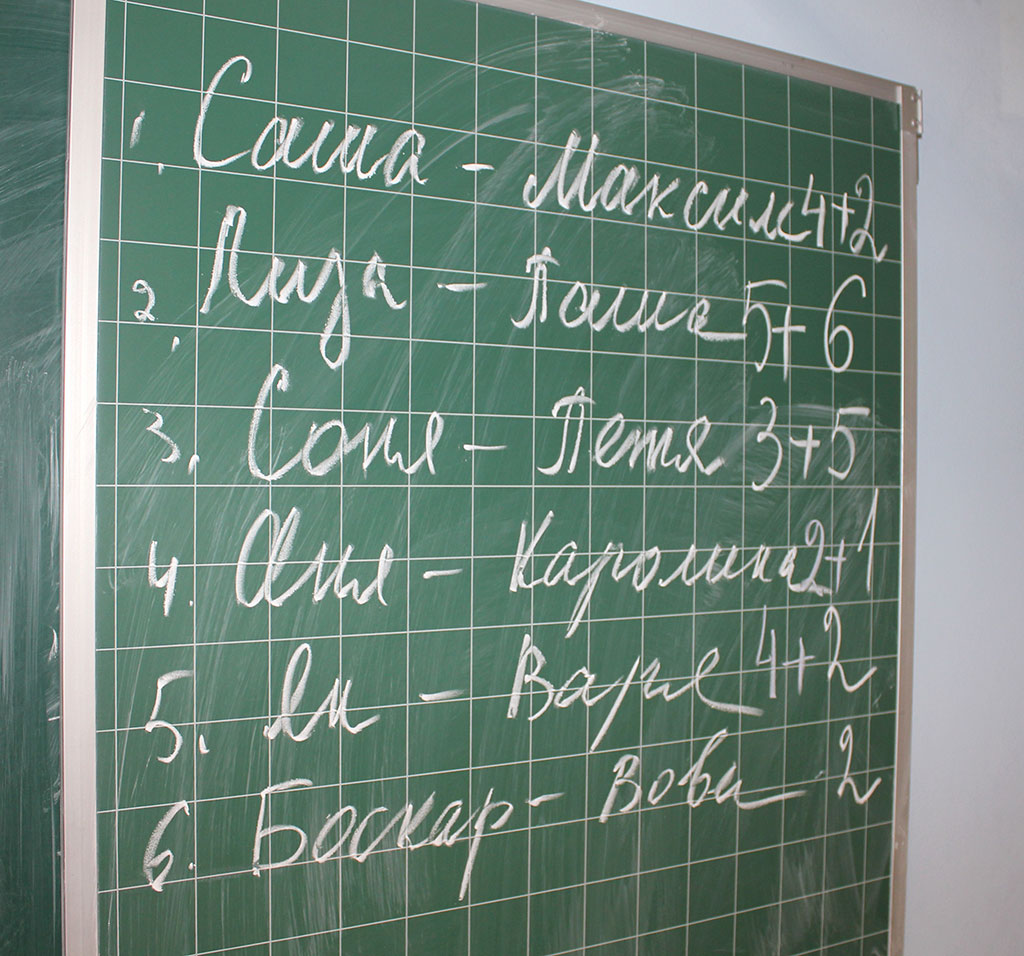 1. Саша - Максим 4+2
2. Лиза - Паша 5+6
3. Соня - Петя 3+5
4. Аня - Каролина 2+1
5. Ян - Варя 4+2
6. Боскар - Вова 2